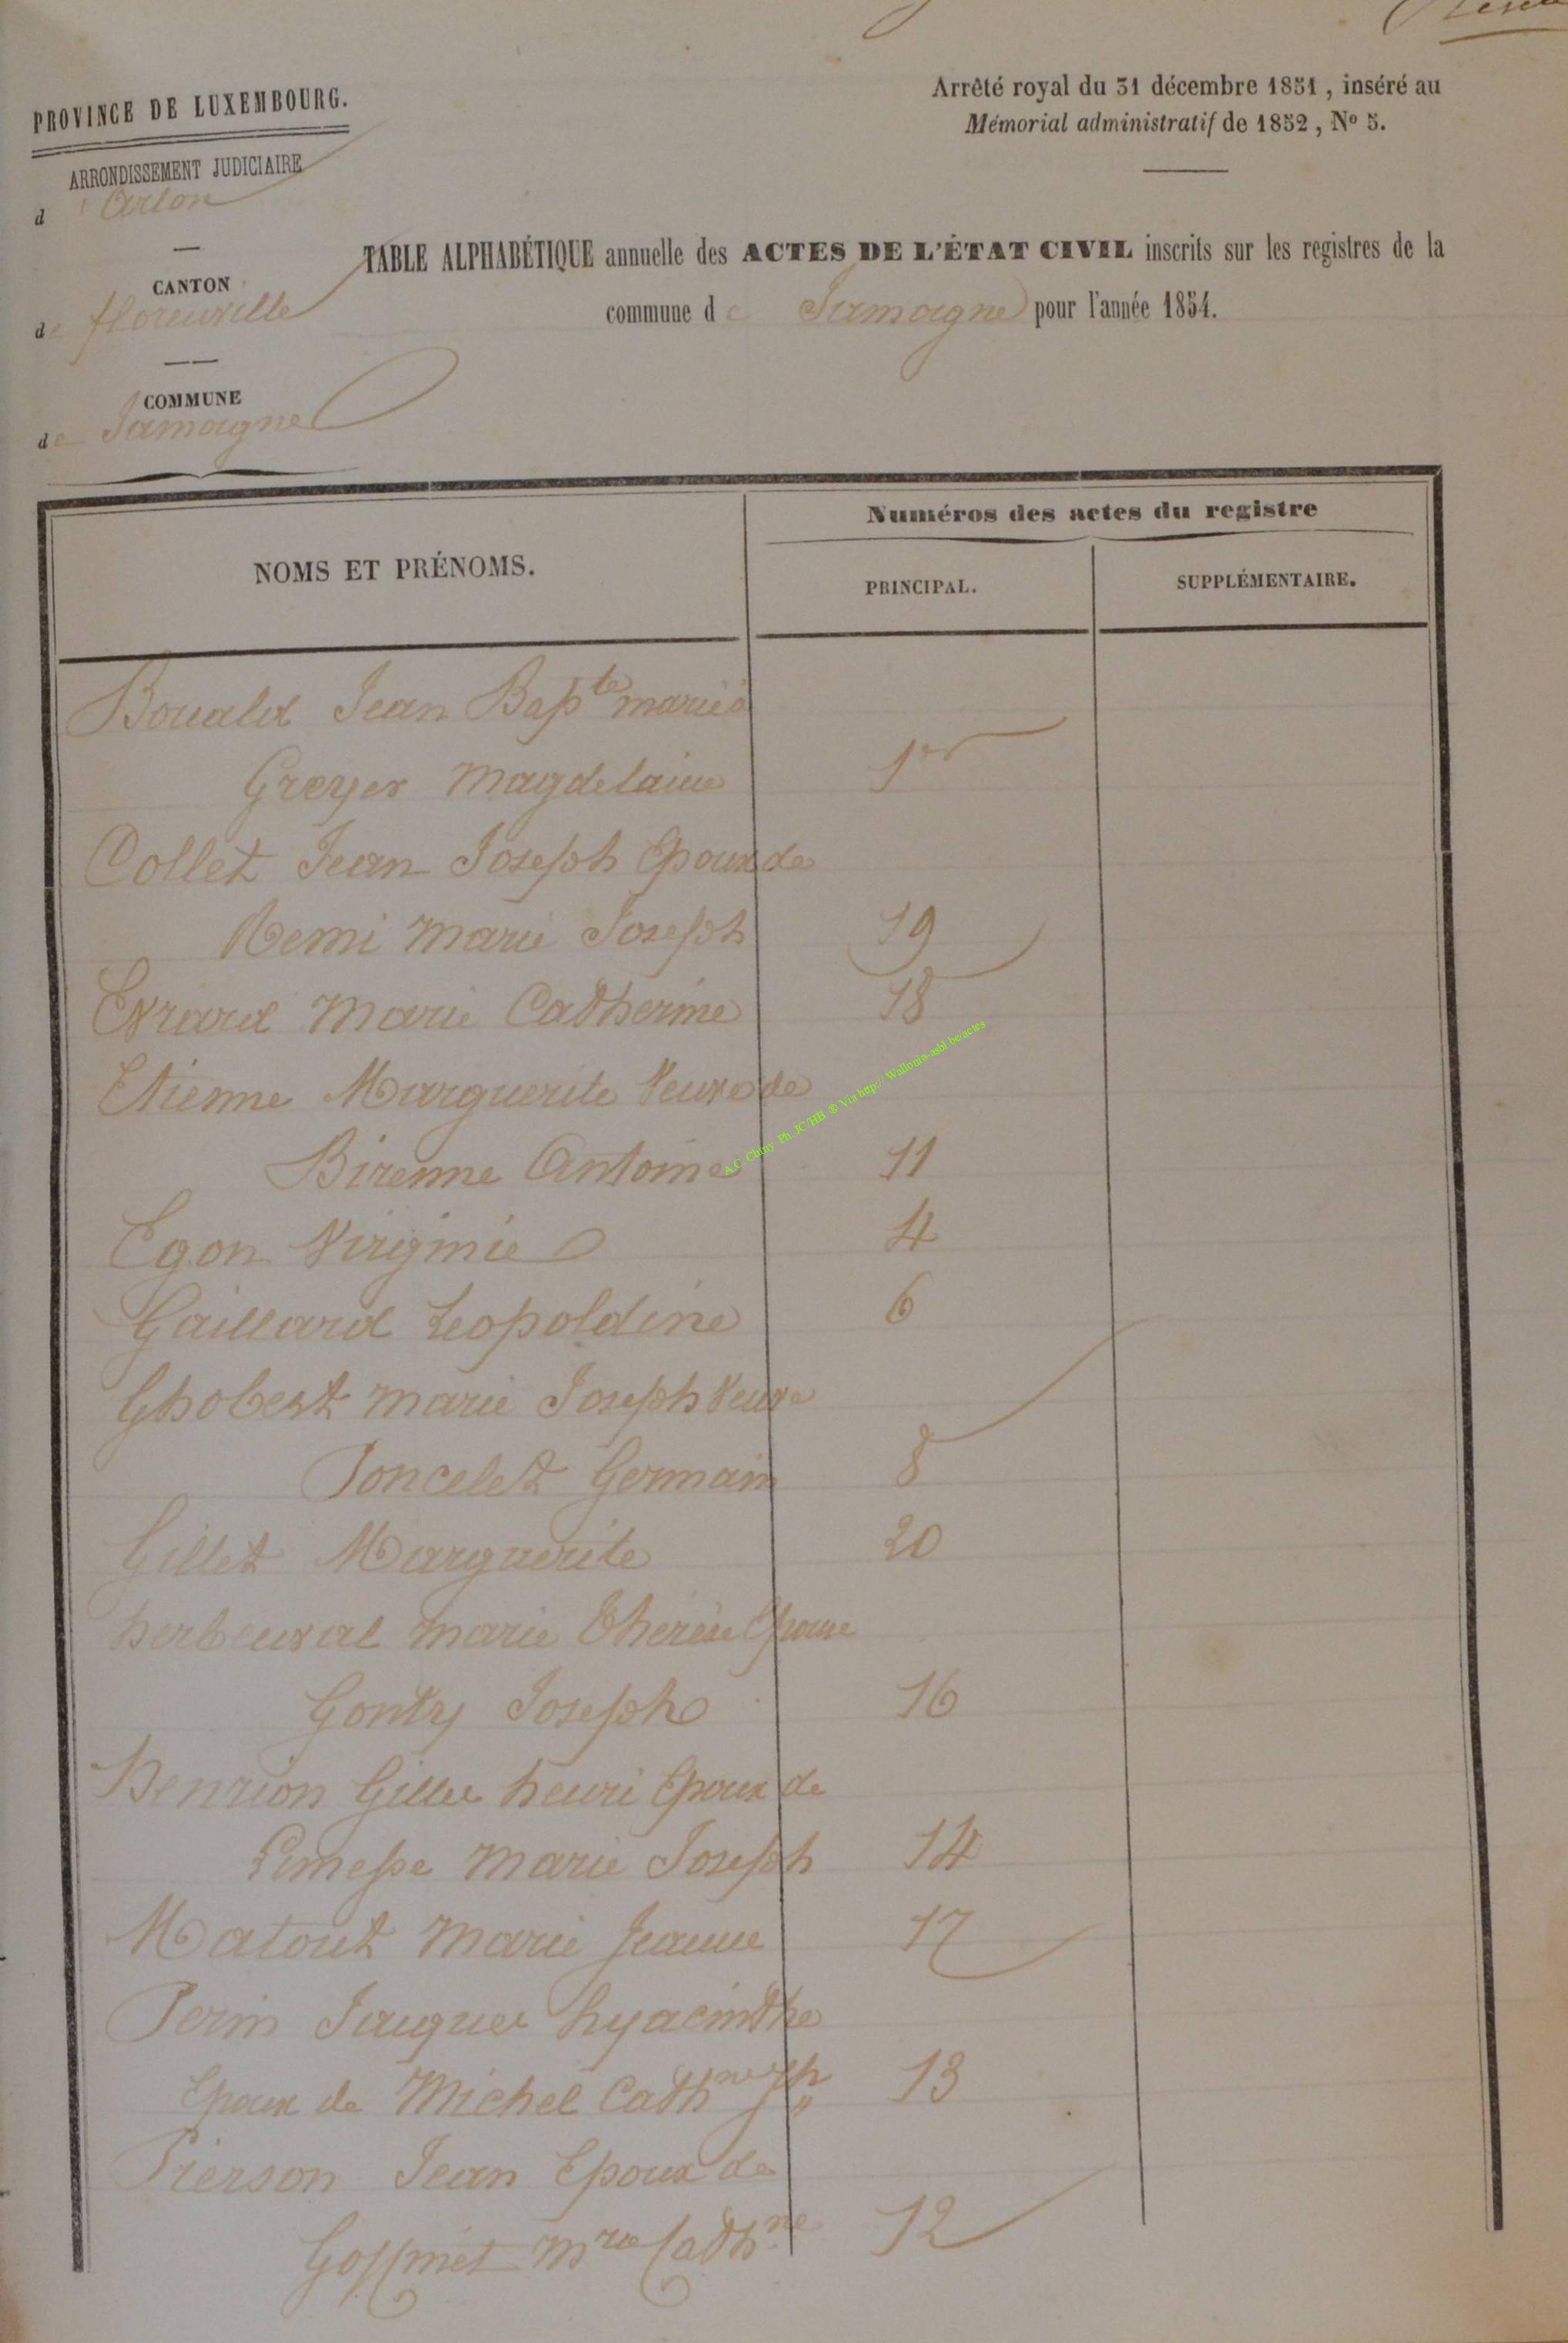 PROVINCE DE LUXEMBOURG.
ARRONDISSEMENT JUDICIAIRE
d'Arlon
CANTON
de florenville
COMMUNE
de Jamoigne
Arrêté royal du 31 décembre 1851, inséré au
Mémorial administratif de 1852, No 5.
TABLE ALPHABÉTIQUE annuelle des ACTES DE L'ÉTAT CIVIL inscrits sur les registres de la
commune de Jamoigne pour l'année 1854.
NOMS ET PRÉNOMS.
Numéros des actes du registre
PRINCIPAL.
SUPPLÉMENTAIRE.
Jean Bapte marié à
Greyer Magdelaine 1er
Collet Jean Joseph Epoux de
Remi Marie Joseph 19
Evrard Marie Catherine 18
Etienne Marguerite Veuve de
Birenne Antoine 11
Egon Virginie 4
Gaillard Leopoldine 6
Ghobert Marie Joseph Veuve
Poncelet Germain 8
Gillet Marguerite 20
herbeuval Marie Therèse Epouse
Gonty Joseph 16
Henrion Gilles henri Epoux de
Marie Joseph 14
Matout Marie Jeanne 17
Perin Jacques hyacinthe
Epoux de Michel Cathne Jph 13
Pierson Jean Epoux de
Goffinet Mrie Cathne 12
A.C. Chiny Ph. JC/HB ® Via http:// Wallonia-asbl.be/actes